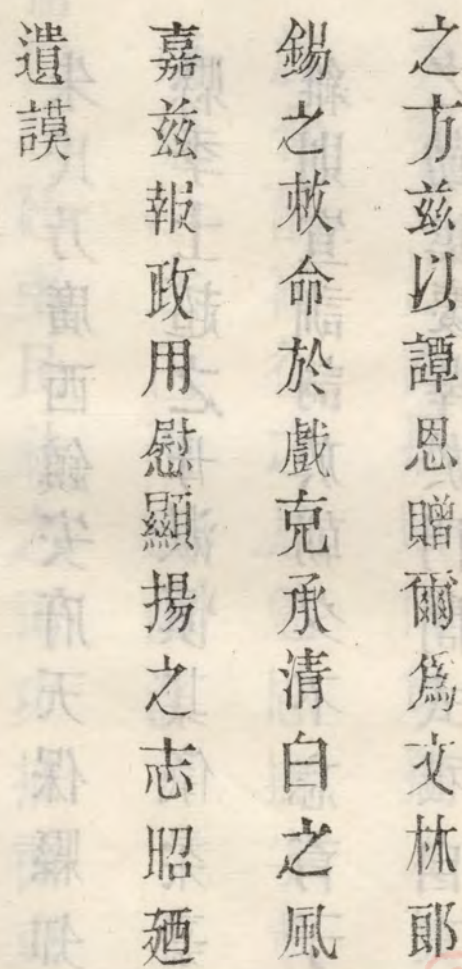 之方兹以譚恩贈爾爲文林郎
錫之敕命於戲克承清白之風
嘉兹報政用慰顯揚之志昭廼
遺謨